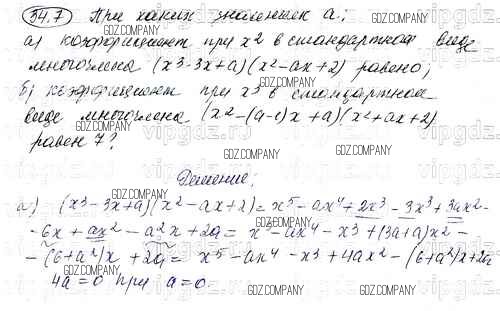 34.7 При каких значениях a:
а) коэффициент при x2 в стандартной виде
многочлена (x3-3x+a)(x2-ax+2) равено;
б) коэффициент при x3 в стандартной
виде многочлена (x2-(a-1)x+a)(x2+ax+2)
равен 7?
Решение:
а) (x³-3x+a)(x²-ax+2) = x⁵-ax⁴+2x³-3x³+3ax²-
-6x+ax²-a²x+2a = x⁵-ax⁴-x³+(3a+a)x²-
-(6+a²)x+2a = x⁵-ax⁴-x³+4ax²-(6+a²)x+2a
4a=0 при a=0.
GDZ.COMPANY
vipgdz.ru